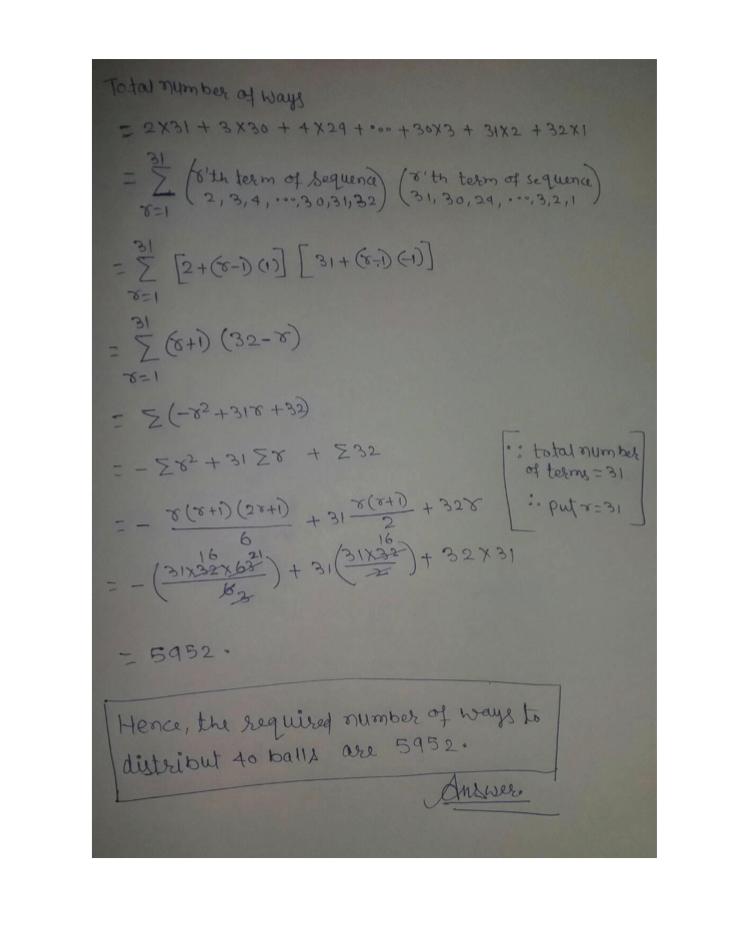 Total number of ways
= 2×31 + 3×30 + 4×29 + ... + 30×3 + 31×2 + 32×1
= 31 Σ r=1 (r'th term of sequence 2, 3, 4, ..., 30, 31, 32) (r'th term of sequence 31, 30, 29, ..., 3, 2, 1)
= 31 Σ r=1 [2+(r-1)(1)] [31+(r-1)(-1)]
= 31 Σ r=1 (r+1) (32-r)
= Σ(-r²+31r+32)
= - Σr² + 31 Σr + Σ32
= - r(r+1)(2r+1)/6 + 31 r(r+1)/2 + 32r
[∵ total number
of terms = 31
∴ put r=31]
= - (31×32×63/6) + 31(31×32/2) + 32×31
16 21 3 16
= 5952.
Hence, the required number of ways to
distribut 40 balls are 5952.
Answer.